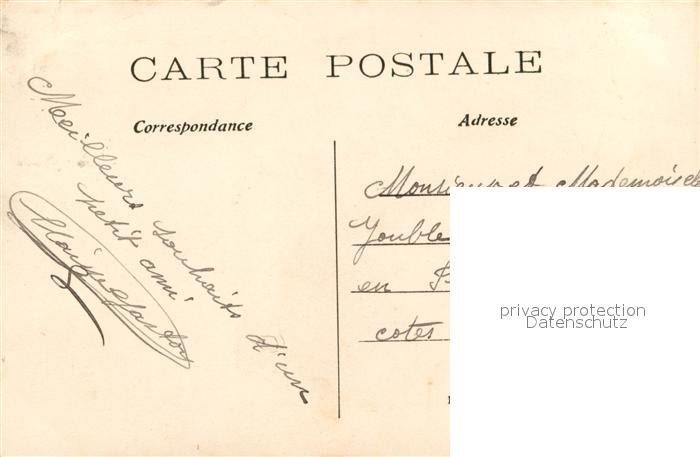 CARTE POSTALE
Correspondance
Adresse
Meilleurs souhaits d'un
petit ami
Monsieur et Mademoisel
en
cotes
privacy protection
Datenschutz